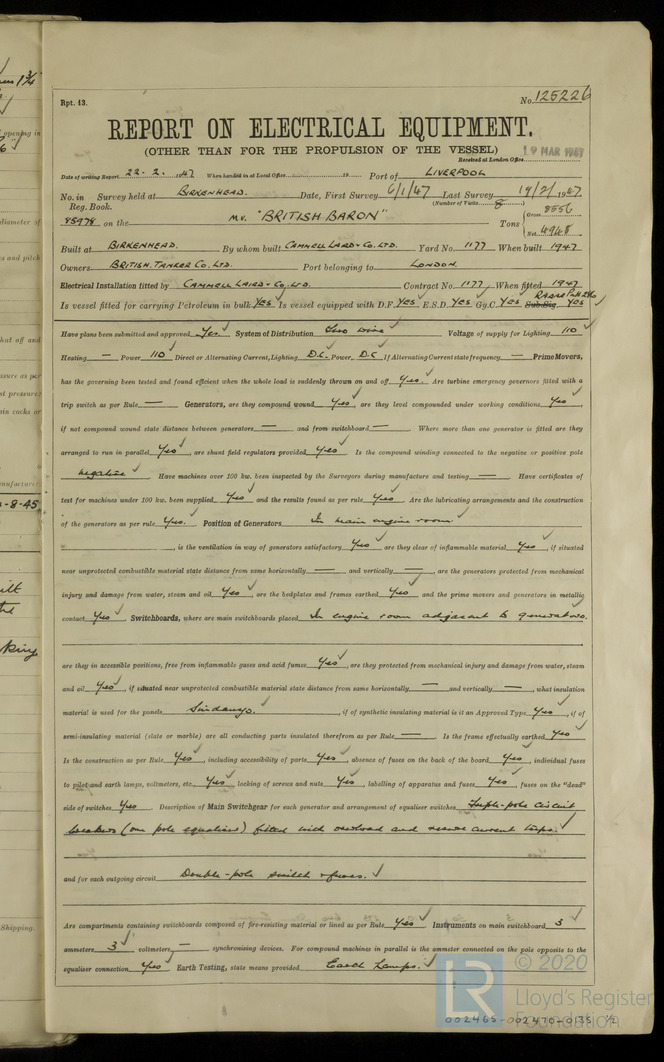 Rpt. 13.
No. 125226
REPORT ON ELECTRICAL EQUIPMENT.
(OTHER THAN FOR THE PROPULSION OF THE VESSEL)
19 MAR 1947
Received at London Office
Date of writing Report 22-2-1947 When handed in at Local Office 19 Port of LIVERPOOL
No. in Survey held at BIRKENHEAD. Date, First Survey 6/1/47 Last Survey 19/2/1947
Reg. Book. (Number of Visits 8)
85978 on the MV. "BRITISH BARON" Tons Gross 8556
Net 4948
Built at BIRKENHEAD. By whom built CAMMELL LAIRD & CO. LTD. Yard No. 1177 When built 1947
Owners BRITISH TANKER CO. LTD. Port belonging to LONDON.
Electrical Installation fitted by CAMMELL LAIRD & CO. LTD. Contract No. 1177 When fitted 1947
Is vessel fitted for carrying Petroleum in bulk YES Is vessel equipped with D.F. YES E.S.D. YES Gy.C. YES Sub.Sig. YES
Have plans been submitted and approved Yes. System of Distribution Two wire Voltage of supply for Lighting 110
Heating — Power 110 Direct or Alternating Current, Lighting D.C. Power D.C If Alternating Current state frequency — Prime Movers,
has the governing been tested and found efficient when the whole load is suddenly thrown on and off Yes. Are turbine emergency governors fitted with a
trip switch as per Rule — Generators, are they compound wound Yes, are they level compounded under working conditions Yes,
if not compound wound state distance between generators — and from switchboard — Where more than one generator is fitted are they
arranged to run in parallel Yes, are shunt field regulators provided Yes. Is the compound winding connected to the negative or positive pole
negative. Have machines over 100 kw. been inspected by the Surveyors during manufacture and testing — Have certificates of
test for machines under 100 kw. been supplied Yes and the results found as per rule Yes. Are the lubricating arrangements and the construction
of the generators as per rule Yes. Position of Generators In main engine room
, is the ventilation in way of generators satisfactory Yes are they clear of inflammable material Yes, if situated
near unprotected combustible material state distance from same horizontally — and vertically —, are the generators protected from mechanical
injury and damage from water, steam and oil Yes, are the bedplates and frames earthed Yes and the prime movers and generators in metallic
contact Yes Switchboards, where are main switchboards placed In engine room adjacent to generators.
are they in accessible positions, free from inflammable gases and acid fumes Yes, are they protected from mechanical injury and damage from water, steam
and oil Yes, if situated near unprotected combustible material state distance from same horizontally — and vertically —, what insulation
material is used for the panels Sindanyo., if of synthetic insulating material is it an Approved Type Yes, if of
semi-insulating material (slate or marble) are all conducting parts insulated therefrom as per Rule — Is the frame effectually earthed Yes
Is the construction as per Rule Yes, including accessibility of parts Yes, absence of fuses on the back of the board Yes, individual fuses
to pilot and earth lamps, voltmeters, etc. Yes locking of screws and nuts Yes, labelling of apparatus and fuses Yes, fuses on the "dead"
side of switches Yes. Description of Main Switchgear for each generator and arrangement of equaliser switches Triple-pole circuit
breakers (one pole equaliser) fitted with overload and reverse current trips.
and for each outgoing circuit Double-pole switch & fuses.
Are compartments containing switchboards composed of fire-resisting material or lined as per Rule Yes Instruments on main switchboard 3
ammeters 3 voltmeters — synchronising devices. For compound machines in parallel is the ammeter connected on the pole opposite to the
equaliser connection Yes Earth Testing, state means provided Earth Lamps.
LR
© 2020
Lloyd's Register
Foundation
002465-002470-0135 1/2
Shipping.